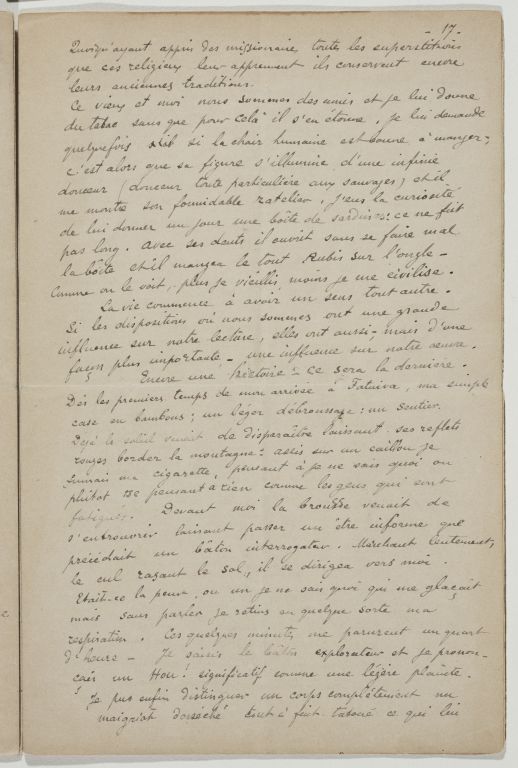 - 17 -
Quoiqu'ayant appris des missionnaires toutes les superstitions
que ces religieux leur apprennent ils conservent encore
leurs anciennes traditions.
Ce vieux et moi nous sommes des amis et je lui donne
du tabac sans que pour celà il s'en étonne. Je lui demande
quelquefois si la chair humaine est bonne à manger;
c'est alors que sa figure s'illumine d'une infinie
douceur (douceur toute particulière aux sauvages) et il
me montre son formidable ratelier. J'eus la curiosité
de lui donner un jour une boîte de sardines: ce ne fut
pas long. Avec ses dents il ouvrit sans se faire mal
la boîte et il mangea le tout Rubis sur l'ongle -
Comme on le voit, plus je vieillis, moins je me civilise.
La vie commence à avoir un sens tout autre.
Si les dispositions où nous sommes ont une grande
influence sur notre lecture, elles ont aussi, mais d'une
façon plus importante - une influence sur notre œuvre.
Encore une histoire - ce sera la dernière.
Dès les premiers temps de mon arrivée à Fatuiva, ma simple
case en bambous; un léger débroussage: un sentier.
Déjà le soleil venait de disparaître laissant ses reflets
rouges border la montagne: assis sur un caillou je
fumais ma cigarette pensant à je ne sais quoi ou
plutôt ne pensant à rien comme les gens qui sont
fatigués. Devant moi la brousse venait de
s'entrouvrir laissant passer un être informe que
précédait un bâton interrogateur. Marchant lentement,
le cul rasant le sol, il se dirigea vers moi.
Etait-ce la peur, ou un je ne sais quoi qui me glaçait
mais sans parler je retins en quelque sorte ma
respiration. Ces quelques minutes me parurent un quart
d'heure - Je saisis le bâton explorateur et je pronon-
cais un Hou! significatif comme une légère plainte.
Je pus enfin distinguer un corps complètement nu
maigriot desséché tout à fait tatoué ce qui lui